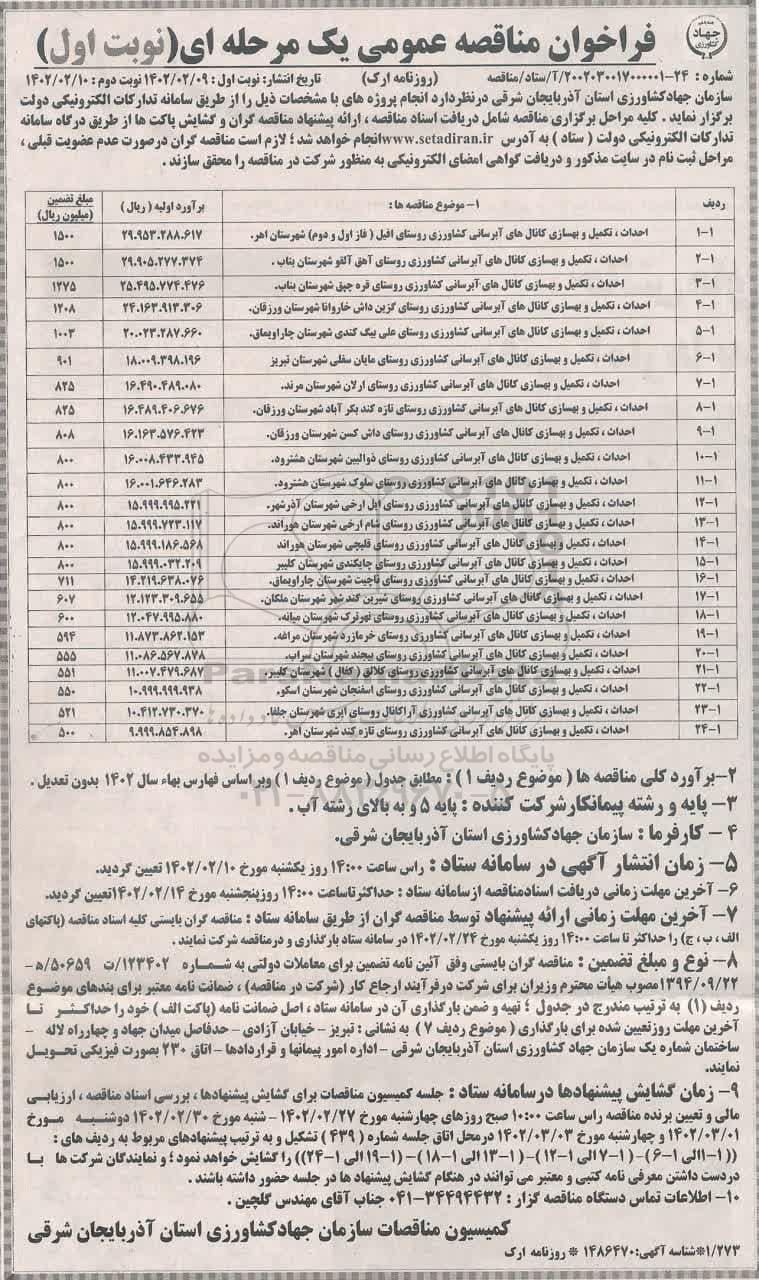 فراخوان مناقصه عمومی یک مرحله ای(نوبت اول)
شماره : ۲۴-۲۰۰۲۰۳۰۰۱۷۰۰۰۰۰۱/آ/ستاد/مناقصه (روزنامه ارک) تاریخ انتشار: نوبت اول : ۱۴۰۲/۰۲/۰۹ نوبت دوم : ۱۴۰۲/۰۲/۱۰
سازمان جهادکشاورزی استان آذربایجان شرقی درنظردارد انجام پروژه های با مشخصات ذیل را از طریق سامانه تدارکات الکترونیکی دولت
برگزار نماید . کلیه مراحل برگزاری مناقصه شامل دریافت اسناد مناقصه ، ارائه پیشنهاد مناقصه گران و گشایش پاکت ها از طریق درگاه سامانه
تدارکات الکترونیکی دولت ( ستاد ) به آدرس www.setadiran.ir انجام خواهد شد ؛ لازم است مناقصه گران درصورت عدم عضویت قبلی ،
مراحل ثبت نام در سایت مذکور و دریافت گواهی امضای الکترونیکی به منظور شرکت در مناقصه را محقق سازند .
ردیف ۱- موضوع مناقصه ها : برآورد اولیه ( ریال ) مبلغ تضمین (میلیون ریال)
۱-۱ احداث ، تکمیل و بهسازی کانال های آبرسانی کشاورزی روستای افیل ( فاز اول و دوم) شهرستان اهر. ۲۹.۹۵۳.۲۸۸.۶۱۷ ۱۵۰۰
۲-۱ احداث ، تکمیل و بهسازی کانال های آبرسانی کشاورزی روستای آهق آلقو شهرستان بناب . ۲۹.۹۰۵.۲۷۷.۳۷۴ ۱۵۰۰
۳-۱ احداث ، تکمیل و بهسازی کانال های آبرسانی کشاورزی روستای قره چپق شهرستان بناب. ۲۵.۴۹۵.۷۷۴.۴۷۶ ۱۲۷۵
۴-۱ احداث ، تکمیل و بهسازی کانال های آبرسانی کشاورزی روستای گزین داش خاروانا شهرستان ورزقان. ۲۴.۱۶۳.۹۱۳.۳۰۶ ۱۲۰۸
۵-۱ احداث ، تکمیل و بهسازی کانال های آبرسانی کشاورزی روستای علی بیگ کندی شهرستان چاراویماق. ۲۰.۰۲۳.۲۸۷.۶۶۰ ۱۰۰۳
۶-۱ احداث ، تکمیل و بهسازی کانال های آبرسانی کشاورزی روستای مایان سفلی شهرستان تبریز ۱۸.۰۰۹.۳۹۸.۱۹۶ ۹۰۱
۷-۱ احداث ، تکمیل و بهسازی کانال های آبرسانی کشاورزی روستای ارلان شهرستان مرند. ۱۶.۴۹۰.۴۸۹.۰۸۰ ۸۲۵
۸-۱ احداث ، تکمیل و بهسازی کانال های آبرسانی کشاورزی روستای تازه کند بکر آباد شهرستان ورزقان. ۱۶.۴۸۹.۴۰۶.۶۷۶ ۸۲۵
۹-۱ احداث ، تکمیل و بهسازی کانال های آبرسانی کشاورزی روستای داش کسن شهرستان ورزقان. ۱۶.۱۶۳.۵۷۶.۴۲۳ ۸۰۸
۱۰-۱ احداث ، تکمیل و بهسازی کانال های آبرسانی کشاورزی روستای ذوالبین شهرستان هشترود. ۱۶.۰۰۸.۴۳۳.۹۴۵ ۸۰۰
۱۱-۱ احداث ، تکمیل و بهسازی کانال های آبرسانی کشاورزی روستای سلوک شهرستان هشترود. ۱۶.۰۰۱.۶۴۶.۲۸۳ ۸۰۰
۱۲-۱ احداث ، تکمیل و بهسازی کانال های آبرسانی کشاورزی روستای ایل ارخی شهرستان آذرشهر. ۱۵.۹۹۹.۹۹۵.۲۲۱ ۸۰۰
۱۳-۱ احداث ، تکمیل و بهسازی کانال های آبرسانی کشاورزی روستای شام ارخی شهرستان هوراند. ۱۵.۹۹۹.۷۲۳.۱۱۷ ۸۰۰
۱۴-۱ احداث ، تکمیل و بهسازی کانال های آبرسانی کشاورزی روستای قلیچی شهرستان هوراند ۱۵.۹۹۹.۱۸۶.۵۶۸ ۸۰۰
۱۵-۱ احداث ، تکمیل و بهسازی کانال های آبرسانی کشاورزی روستای چایکندی شهرستان کلیبر ۱۵.۹۹۹.۰۳۲.۲۰۹ ۸۰۰
۱۶-۱ احداث ، تکمیل و بهسازی کانال های آبرسانی کشاورزی روستای شهرستان چاراویماق. ۱۴.۲۱۹.۶۳۸.۰۷۶ ۷۱۱
۱۷-۱ احداث ، تکمیل و بهسازی کانال های آبرسانی کشاورزی روستای شیرین کند شهر شهرستان ملکان. ۱۲.۱۲۳.۳۰۹.۶۵۵ ۶۰۷
۱۸-۱ احداث ، تکمیل و بهسازی کانال های آبرسانی کشاورزی روستای نهرترک شهرستان میانه. ۱۲.۰۴۷.۹۹۵.۸۸۰ ۶۰۰
۱۹-۱ احداث ، تکمیل و بهسازی کانال های آبرسانی کشاورزی روستای خرمازرد شهرستان مراغه. ۱۱.۸۷۳.۸۶۲.۱۵۳ ۵۹۴
۲۰-۱ احداث ، تکمیل و بهسازی کانال های آبرسانی کشاورزی روستای بیجند شهرستان سراب. ۱۱.۰۸۶.۵۶۷.۸۷۸ ۵۵۵
۲۱-۱ احداث ، تکمیل و بهسازی کانال های آبرسانی کشاورزی روستای کلالق ( کفال ) شهرستان کلیبر ۱۱.۰۰۷.۴۷۹.۶۸۷ ۵۵۱
۲۲-۱ احداث ، تکمیل و بهسازی کانال های آبرسانی کشاورزی روستای اسفنجان شهرستان اسکو. ۱۰.۹۹۹.۹۹۹.۹۳۸ ۵۵۰
۲۳-۱ احداث ، تکمیل و بهسازی کانال های آبرسانی کشاورزی آراکانال روستای ایری شهرستان جلفا. ۱۰.۴۱۲.۷۳۰.۳۷۰ ۵۲۱
۲۴-۱ احداث ، تکمیل و بهسازی کانال های آبرسانی کشاورزی روستای تازه کند شهرستان اهر. ۹.۹۹۹.۸۵۴.۸۹۸ ۵۰۰
پایگاه اطلاع رسانی مناقصه و مزایده
۰۲۱-۸۸۳۴۹۶۷۰-۵
۲-برآورد کلی مناقصه ها ( موضوع ردیف ۱ ) : مطابق جدول ( موضوع ردیف ۱) وبر اساس فهارس بهاء سال ۱۴۰۲ بدون تعدیل .
۳- پایه و رشته پیمانکارشرکت کننده : پایه ۵ و به بالای رشته آب .
۴ - کارفرما : سازمان جهادکشاورزی استان آذربایجان شرقی.
۵- زمان انتشار آگهی در سامانه ستاد : راس ساعت ۱۴:۰۰ روز یکشنبه مورخ ۱۴۰۲/۰۲/۱۰ تعیین گردید.
۶- آخرین مهلت زمانی دریافت اسنادمناقصه ازسامانه ستاد : حداکثرتاساعت ۱۴:۰۰ روزپنجشنبه مورخ ۱۴۰۲/۰۲/۱۴تعیین گردید.
۷- آخرین مهلت زمانی ارائه پیشنهاد توسط مناقصه گران از طریق سامانه ستاد : مناقصه گران بایستی کلیه اسناد مناقصه (پاکتهای
الف ، ب ، ج) را حداکثر تا ساعت ۱۴:۰۰ روز یکشنبه مورخ ۱۴۰۲/۰۲/۲۴ در سامانه ستاد بارگذاری و درمناقصه شرکت نمایند .
۸- نوع و مبلغ تضمین : مناقصه گران بایستی وفق آئین نامه تضمین برای معاملات دولتی به شماره ۱۲۳۴۰۲/ت ۵۰۶۵۹/ه-
۱۳۹۴/۰۹/۲۲مصوب هیأت محترم وزیران برای شرکت درفرآیند ارجاع کار (شرکت در مناقصه) ، ضمانت نامه معتبر برای بندهای موضوع
ردیف (۱) به ترتیب مندرج در جدول ؛ تهیه و ضمن بارگذاری آن در سامانه ستاد ، اصل ضمانت نامه (پاکت الف ) خود را حداکثر تا
آخرین مهلت روزتعیین شده برای بارگذاری ( موضوع ردیف ۷ ) به نشانی : تبریز - خیابان آزادی - حدفاصل میدان جهاد و چهارراه لاله -
ساختمان شماره یک سازمان جهاد کشاورزی استان آذربایجان شرقی - اداره امور پیمانها و قراردادها - اتاق ۲۳۰ بصورت فیزیکی تحویل
نمایند.
۹- زمان گشایش پیشنهادها درسامانه ستاد : جلسه کمیسیون مناقصات برای گشایش پیشنهادها ، بررسی اسناد مناقصه ، ارزیابی
مالی و تعیین برنده مناقصه راس ساعت ۱۰:۰۰ صبح روزهای چهارشنبه مورخ ۱۴۰۲/۰۲/۲۷ - شنبه مورخ ۱۴۰۲/۰۲/۳۰ دوشنبه مورخ
۱۴۰۲/۰۳/۰۱ و چهارشنبه مورخ ۱۴۰۲/۰۳/۰۳ درمحل اتاق جلسه شماره ( ۴۳۹ ) تشکیل و به ترتیب پیشنهادهای مربوط به ردیف های :
((۱-۱ الی ۶-۱)- (۷-۱ الی ۱۲-۱)- (۱۳-۱ الی ۱۸-۱)- (۱۹-۱ الی ۲۴-۱)) را گشایش خواهد نمود ؛ و نمایندگان شرکت ها با
دردست داشتن معرفی نامه کتبی و معتبر می توانند در هنگام گشایش پیشنهاد ها در جلسه حضور داشته باشند .
۱۰- اطلاعات تماس دستگاه مناقصه گزار : ۳۴۴۹۴۴۳۲-۰۴۱ جناب آقای مهندس گلچین .
کمیسیون مناقصات سازمان جهادکشاورزی استان آذربایجان شرقی
۱/۲۷۳*شناسه آگهی:۱۴۸۶۴۷۰ * روزنامه ارک